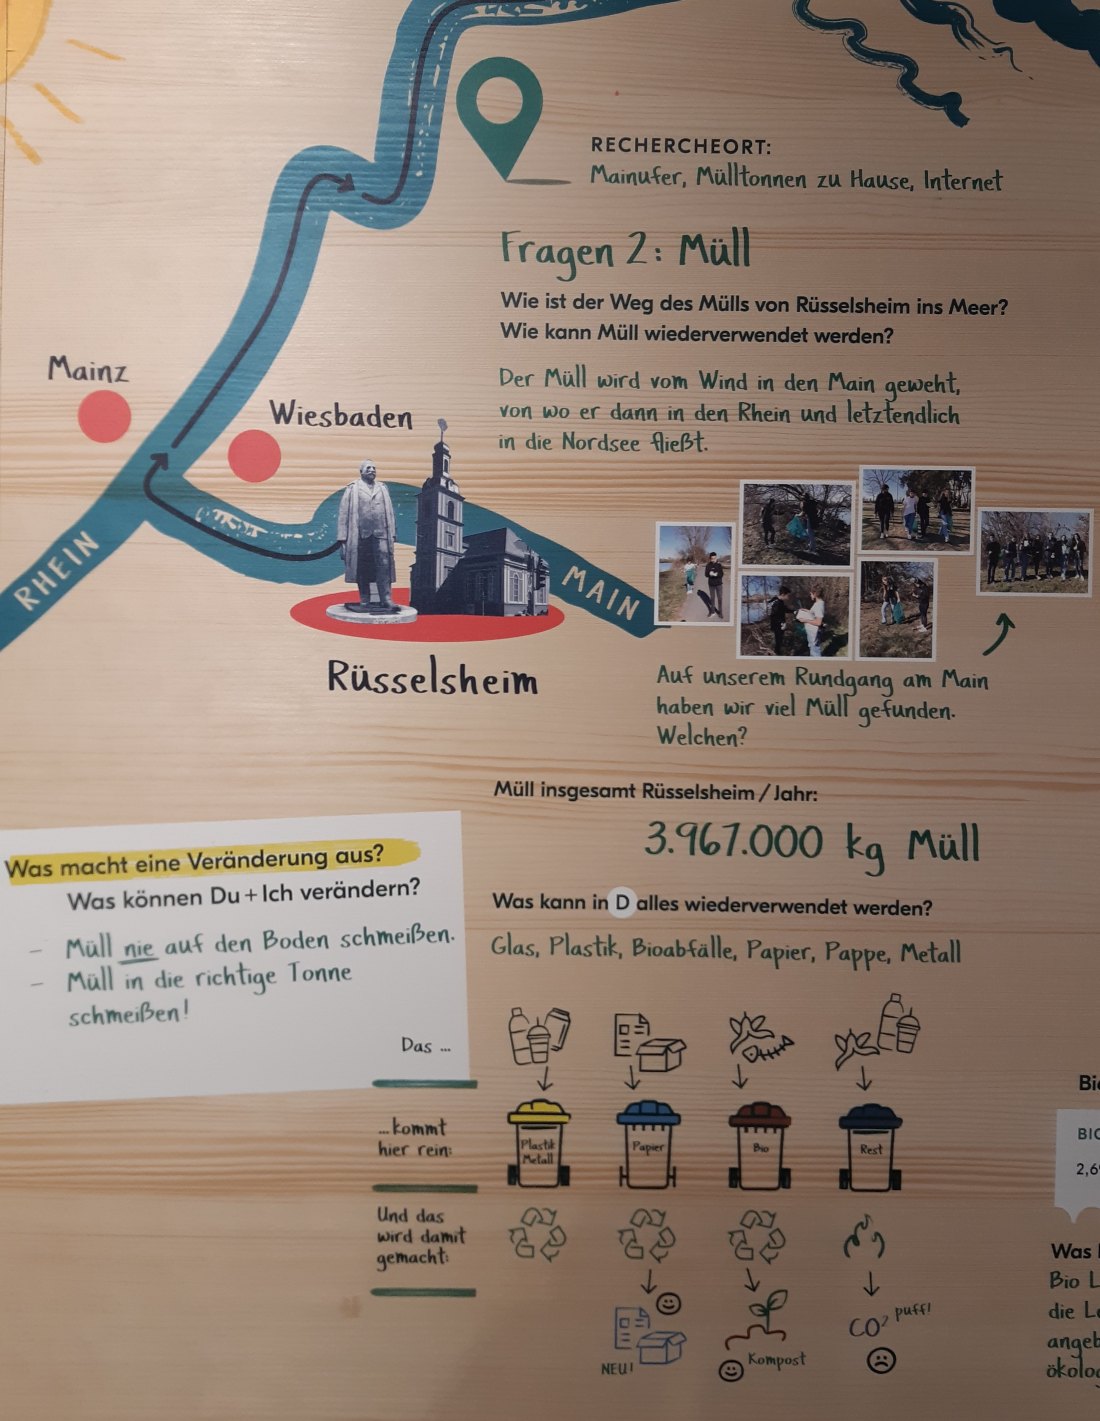 RECHERCHEORT:
Mainufer, Mülltonnen zu Hause, Internet
Fragen 2: Müll
Wie ist der Weg des Mülls von Rüsselsheim ins Meer?
Wie kann Müll wiederverwendet werden?
Der Müll wird vom Wind in den Main geweht,
von wo er dann in den Rhein und letztendlich
in die Nordsee fließt.
Mainz
Wiesbaden
RHEIN
MAIN
Rüsselsheim
Auf unserem Rundgang am Main
haben wir viel Müll gefunden.
Welchen?
Müll insgesamt Rüsselsheim / Jahr:
3.967.000 kg Müll
Was macht eine Veränderung aus?
Was können Du + Ich verändern?
- Müll nie auf den Boden schmeißen.
- Müll in die richtige Tonne
schmeißen!
Was kann in D alles wiederverwendet werden?
Glas, Plastik, Bioabfälle, Papier, Pappe, Metall
Das ...
...kommt
hier rein:
Plastik
Metall
Papier
Bio
Rest
Und das
wird damit
gemacht:
NEU!
Kompost
CO² puff!
BIO
2,6
Was
Bio L
die L
angeb
ökolo